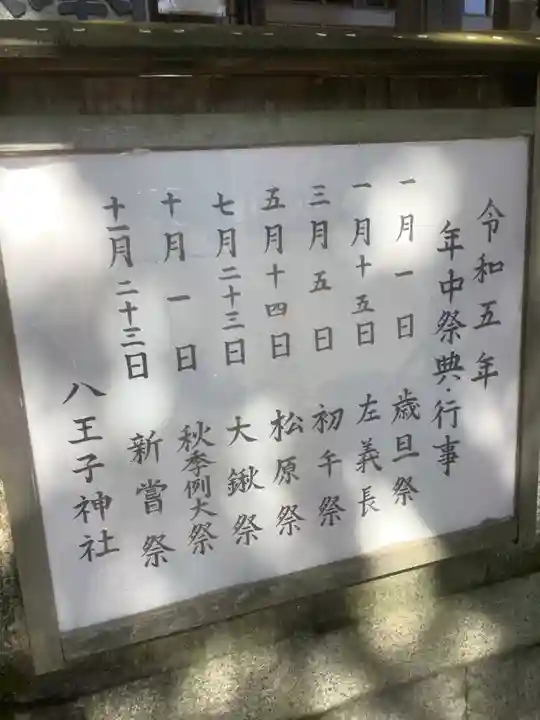 令和五年
年中祭典・行事
一月一日 歳旦祭
一月十五日 左義長
三月五日 初午祭
五月十四日 松原祭
七月二十三日 大鍬祭
十月一日 秋季例大祭
十一月二十三日 新嘗祭
八王子神社